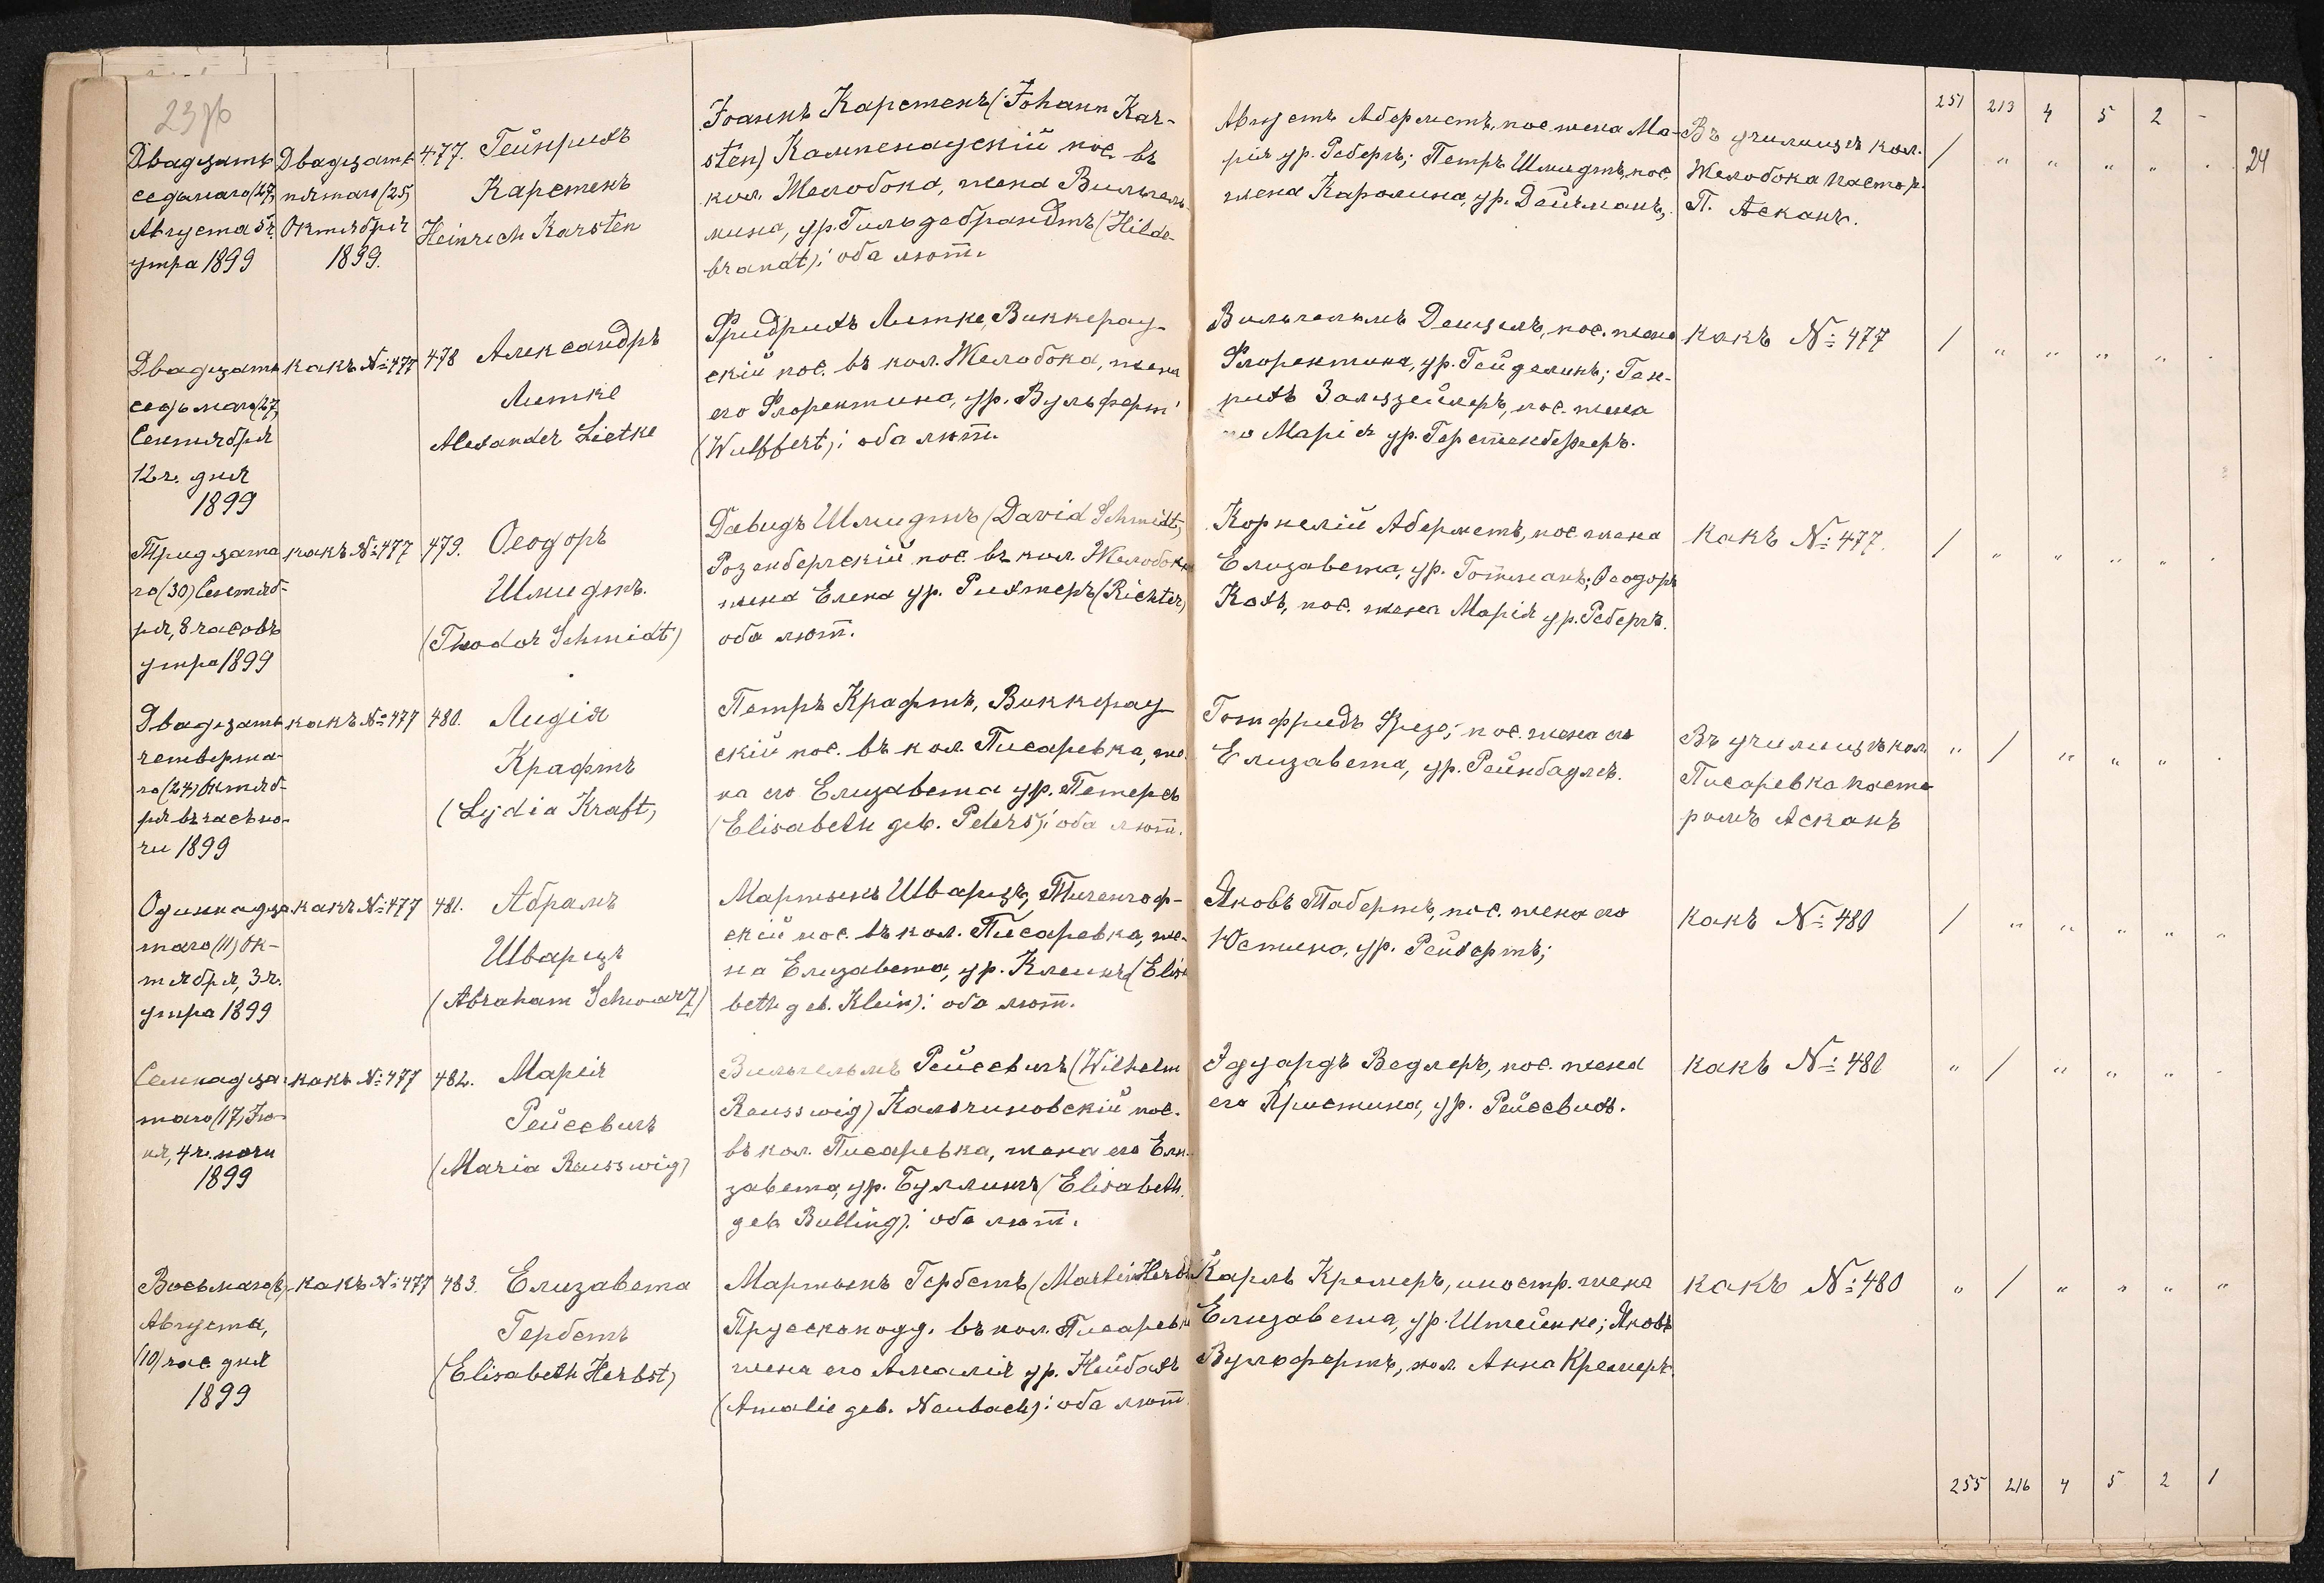 23 об
251 213 4 5 2 -
24
Двадцать
седьмаго (27)
Августа 5 ч.
утра 1899
Двадцать
пятаго (25)
Октября
1899.
477. Гейнрихъ
Карстенъ
Heinrich Karsten
Іоаннъ Карстенъ (Johann Kar-
sten) Кампенаускій пос. въ
кол. Желобока, жена Вильгель-
мина, ур. Гильдебрандтъ (Hilde-
brandt); оба лют.
Августъ Аберметъ, пос. жена Ма-
рія ур. Ребергъ; Петръ Шмидтъ, пос.
жена Каролина, ур. Дейчманъ;
Въ училищѣ кол.
Желобока пастор.
П. Асканъ.
/ " " " " .
Двадцать
седьмаго (27)
Сентября
12 ч. дня
1899
какъ №: 477
478 Александръ
Литке
Alexander Lietke
Фридрихъ Литке, Виккерау-
скій пос. въ кол. Желобока, жена
его Флорентина, ур. Вульферт
(Wulffert); оба лют.
Вильгельмъ Денцель, пос. жена
Флорентина, ур. Гейделинъ; Ген-
рихъ Залцзейлеръ, пос. жена
го Марія ур. Герстенбергеръ.
какъ №: 477
/ " " " " .
Тридцата
го (30) Сентяб-
ря, 8 часовъ
утра 1899
какъ №: 477
479. Ѳеодоръ
Шмидтъ.
(Theodor Schmidt)
Давидъ Шмидтъ (David Schmidt),
Розенбергскій пос. въ кол. Желобока
жена Елена ур. Рихтеръ (Richter)
оба лют.
Корнелій Аберметъ, пос. жена
Елизавета, ур. Готманъ; Ѳеодоръ
Кохъ, пос. жена Марія ур. Ребергъ.
какъ №: 477.
/ " " " " .
Двадцать
четверта-
го (24) Октяб-
ря въ часъ но-
чи 1899
какъ №: 477
480. Лидія
Крафтъ
(Lydia Kraft)
Петръ Крафтъ, Виккерау
скій пос. въ кол. Писаревка, же-
на его Елизавета ур. Петерсъ
(Elisabeth geb. Peters); оба лют.
Готфридъ Фризе; пос. жена его
Елизавета, ур. Рейнбадль.
Въ училищѣ кол.
Писаревка пасто
ромъ Асканъ
" / " " " .
Одиннадца
таго (11) Ок-
тября, 3 ч.
утра 1899
какъ №: 477
481. Абрамъ
Шварцъ
(Abraham Schwarz)
Мартынъ Шварцъ, Тигенгоф-
скій пос. въ кол. Писаревка, же-
на Елизавета, ур. Клеинъ (Elisa
beth geb. Klein): оба лют.
Яковъ Табертъ, пос. жена его
Юстина, ур. Рейхертъ;
какъ №: 480
/ " " " " "
Семнадца-
таго (17) Ію-
ня, 4 ч. ночи
1899
какъ №: 477
482. Марія
Рейссвигъ
(Maria Reusswig)
Вильгельмъ Рейссвигъ (Wilhelm
Reusswig) Кальчиновскій пос.
въ кол. Писаревка, жена его Ели-
завета, ур. Буллингъ (Elisabeth
geb Bulling): оба лют.
Эдуардъ Ведлеръ, пос. жена
его Христина, ур. Рейссвихъ.
какъ №: 480
" / " " " .
Восьмаго (8)
Августа,
(10) час дня
1899
какъ №: 477
483. Елизавета
Гербстъ
(Elisabeth Herbst)
Мартынъ Гербстъ (Martin Herbst
Прусскоподд. въ кол. Писаревка
жена его Амалія ур. Нейбахъ
(Amalie geb. Neubach): оба лют
Карлъ Кремеръ, иностр. жена
Елизавета, ур. Штейнке; Яковъ
Вульфертъ, хол. Анна Кремеръ.
какъ №: 480
" / " " " "
255 216 4 5 2 1